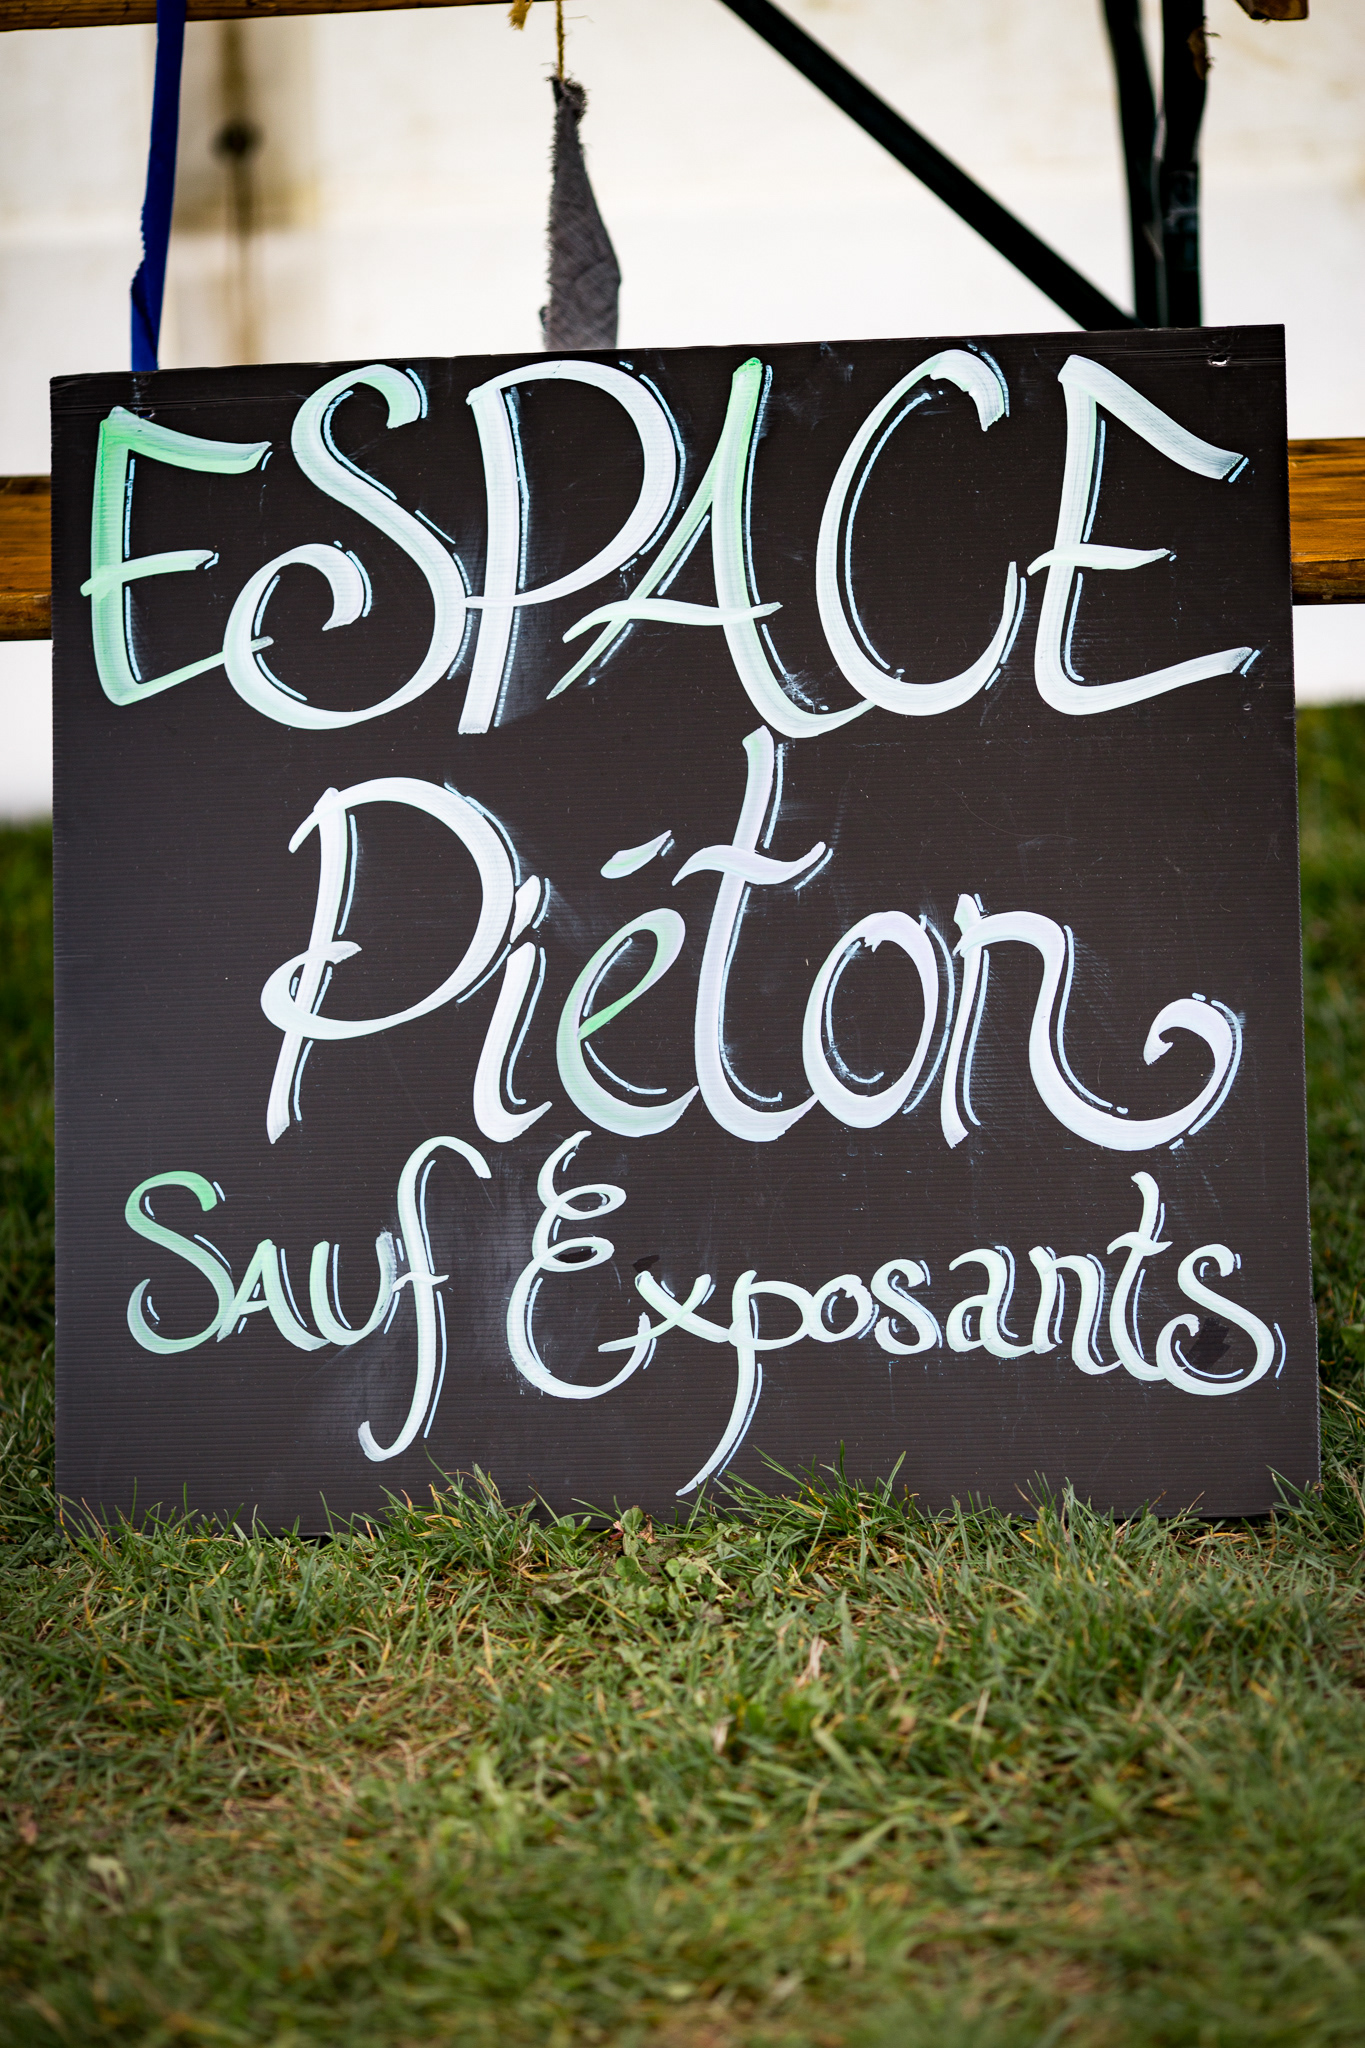 ESPACE
Piéton
Sauf Exposants